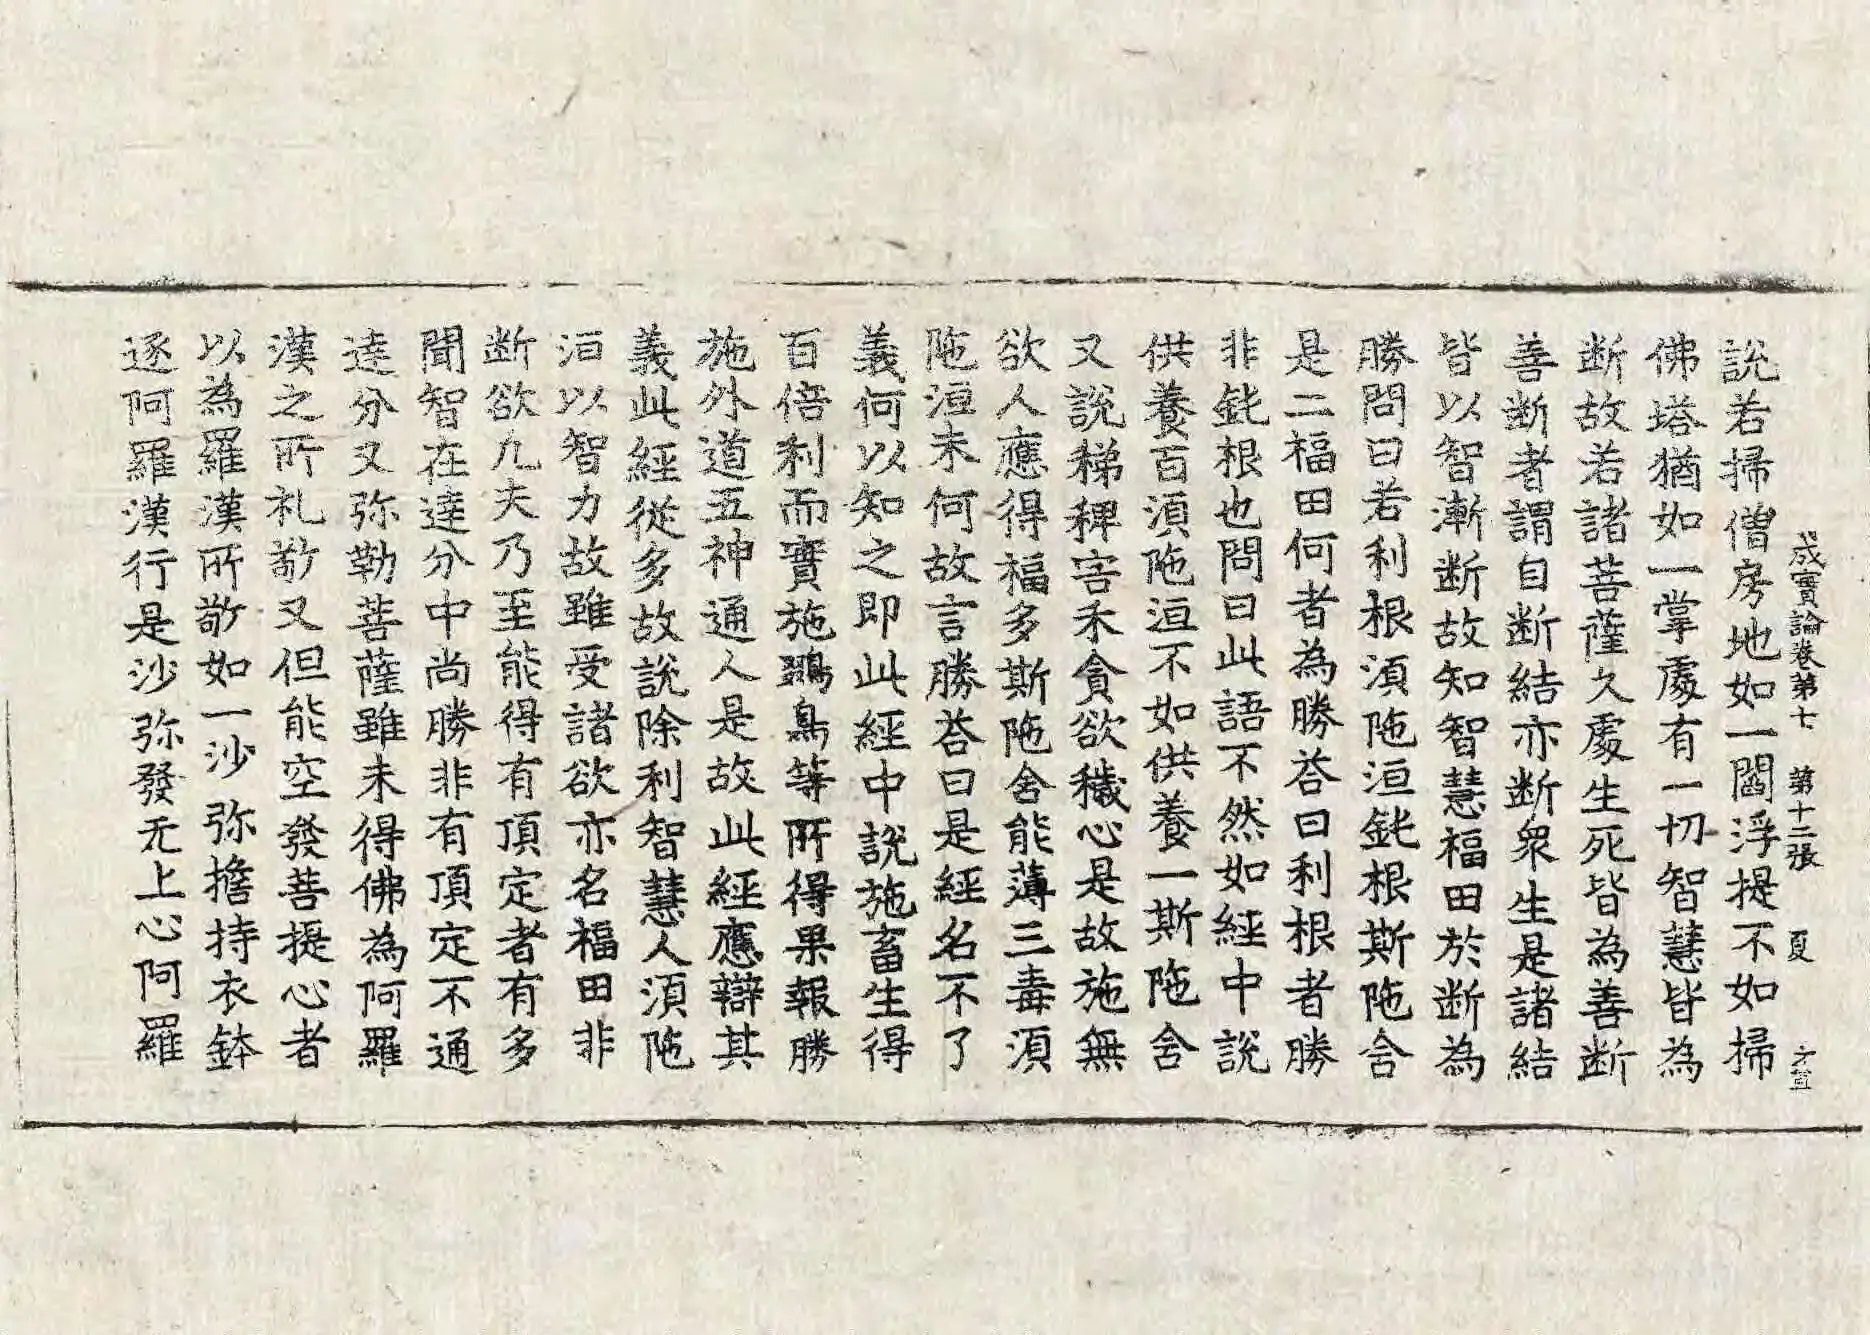 成實論卷第七 第十二張 夏
說若掃僧房地如一閻浮提不如掃
佛塔猶如一掌處有一切智慧皆為
断故若諸菩薩久處生死皆為善断
善断者謂自断結亦断眾生是諸結
皆以智漸断故知智慧福田於断為
勝問曰若利根湏陁洹鈍根斯陁含
是二福田何者為勝荅曰利根者勝
非鈍根也問曰此語不然如經中說
供養百湏陁洹不如供養一斯陁含
又說稊稗害禾貪欲穢心是故施無
欲人應得福多斯陁含能薄三毒湏
陁洹未何故言勝荅曰是經名不了
義何以知之即此經中說施畜生得
百倍利而實施鵶鳥等所得果報勝
施外道五神通人是故此經應辯其
義此經從多故說除利智慧人湏陁
洹以智力故雖受諸欲亦名福田非
断欲凡夫乃至能得有頂定者有多
聞智在達分中尚勝非有頂定不通
達分又弥勒菩薩雖未得佛為阿羅
漢之所礼敬又但能空發菩提心者
以為羅漢所敬如一沙弥擔持衣鉢
逐阿羅漢行是沙弥發无上心阿羅